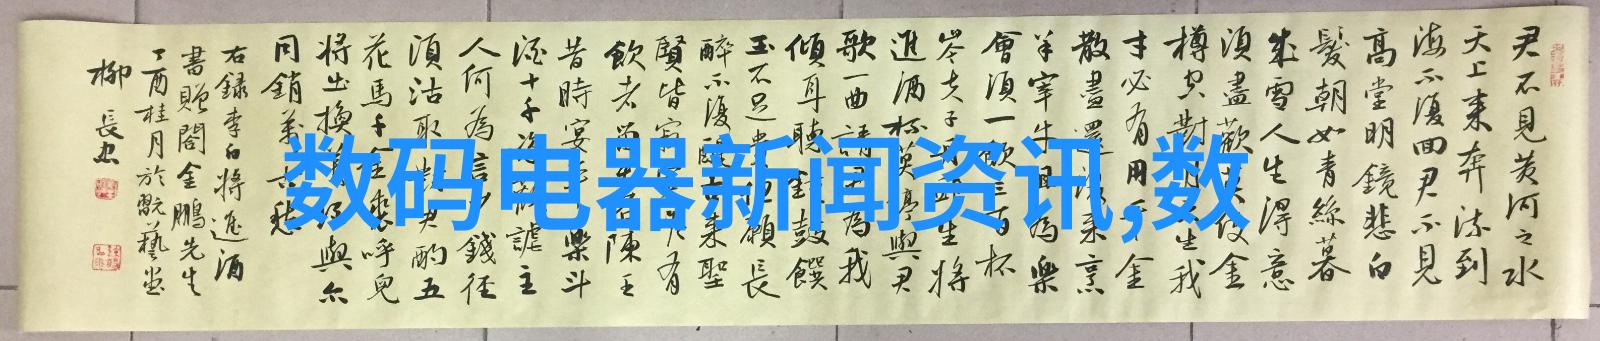 君不見黄河之水
天上来奔流到
海不復回君不見
高堂明鏡悲白
髮朝如青絲暮
成雪人生得意
須盡歡莫使金
樽空對月天生我
才必有用千金
散盡還復来烹
羊宰牛且為樂
會須一飲三百杯
岑夫子丹丘生将
進酒杯莫停與君
歌一曲請君為我
傾耳聽鐘鼓饌
玉不足貴但願長
醉不復醒古来聖
賢皆寂有
飲者留名陳王
昔時宴平樂斗
酒十千恣謔主
人何為言少錢径
須沽取對君酌五
花馬千金裘呼兒
将出換美酒與尔
同銷萬古愁
右録李白将進酒
書贈閻金鵬先生
丁酉桂月於翫藝堂
柳長忠
数码电器新闻资讯,数